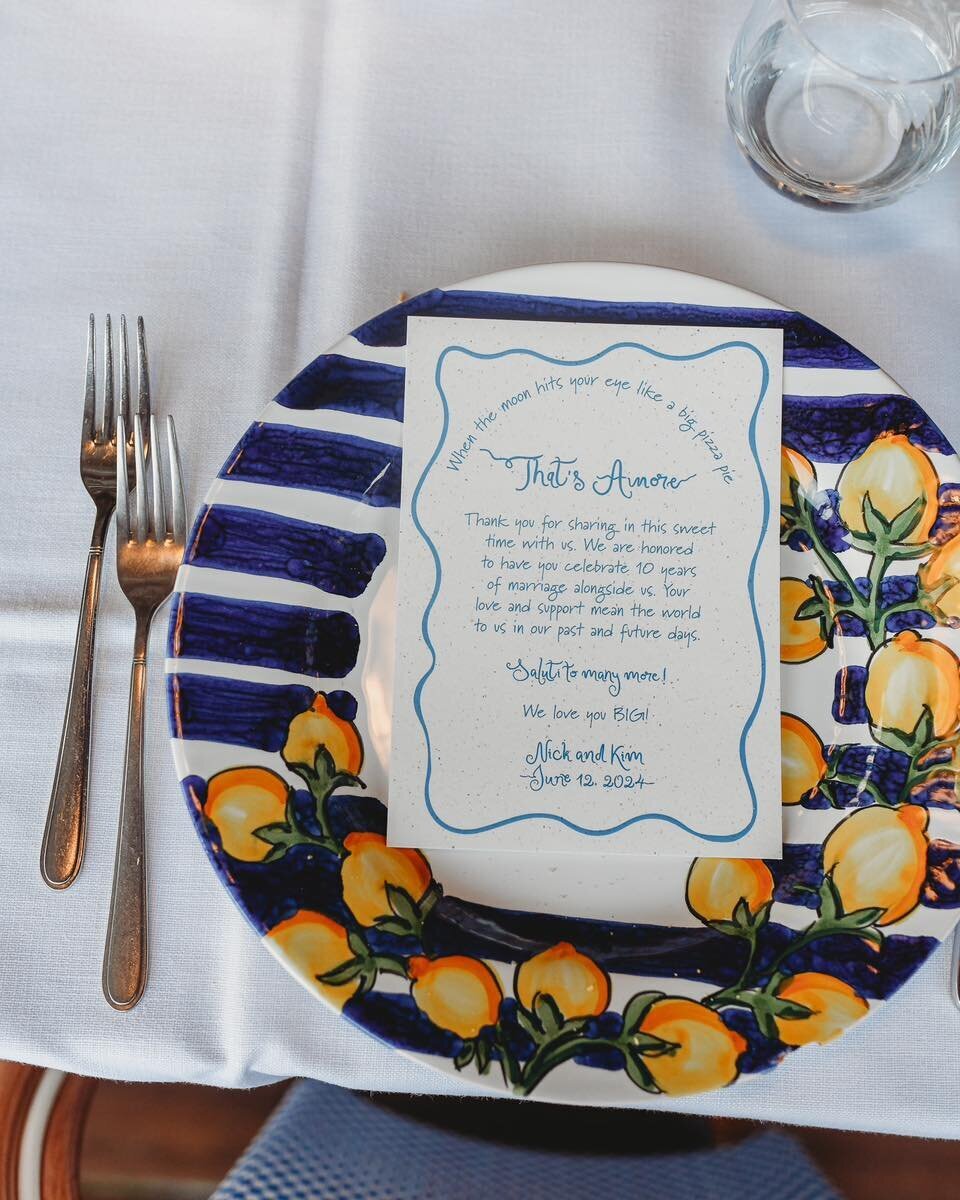 When the moon hits your eye like a big pizza pie
That's Amore
Thank you for sharing in this sweet
time with us. We are honored
to have you celebrate 10 years
of marriage alongside us. Your
love and support mean the world
to us in our past and future days.
Saluti to many more!
We love you BIG!
Nick and Kim
June 12, 2024